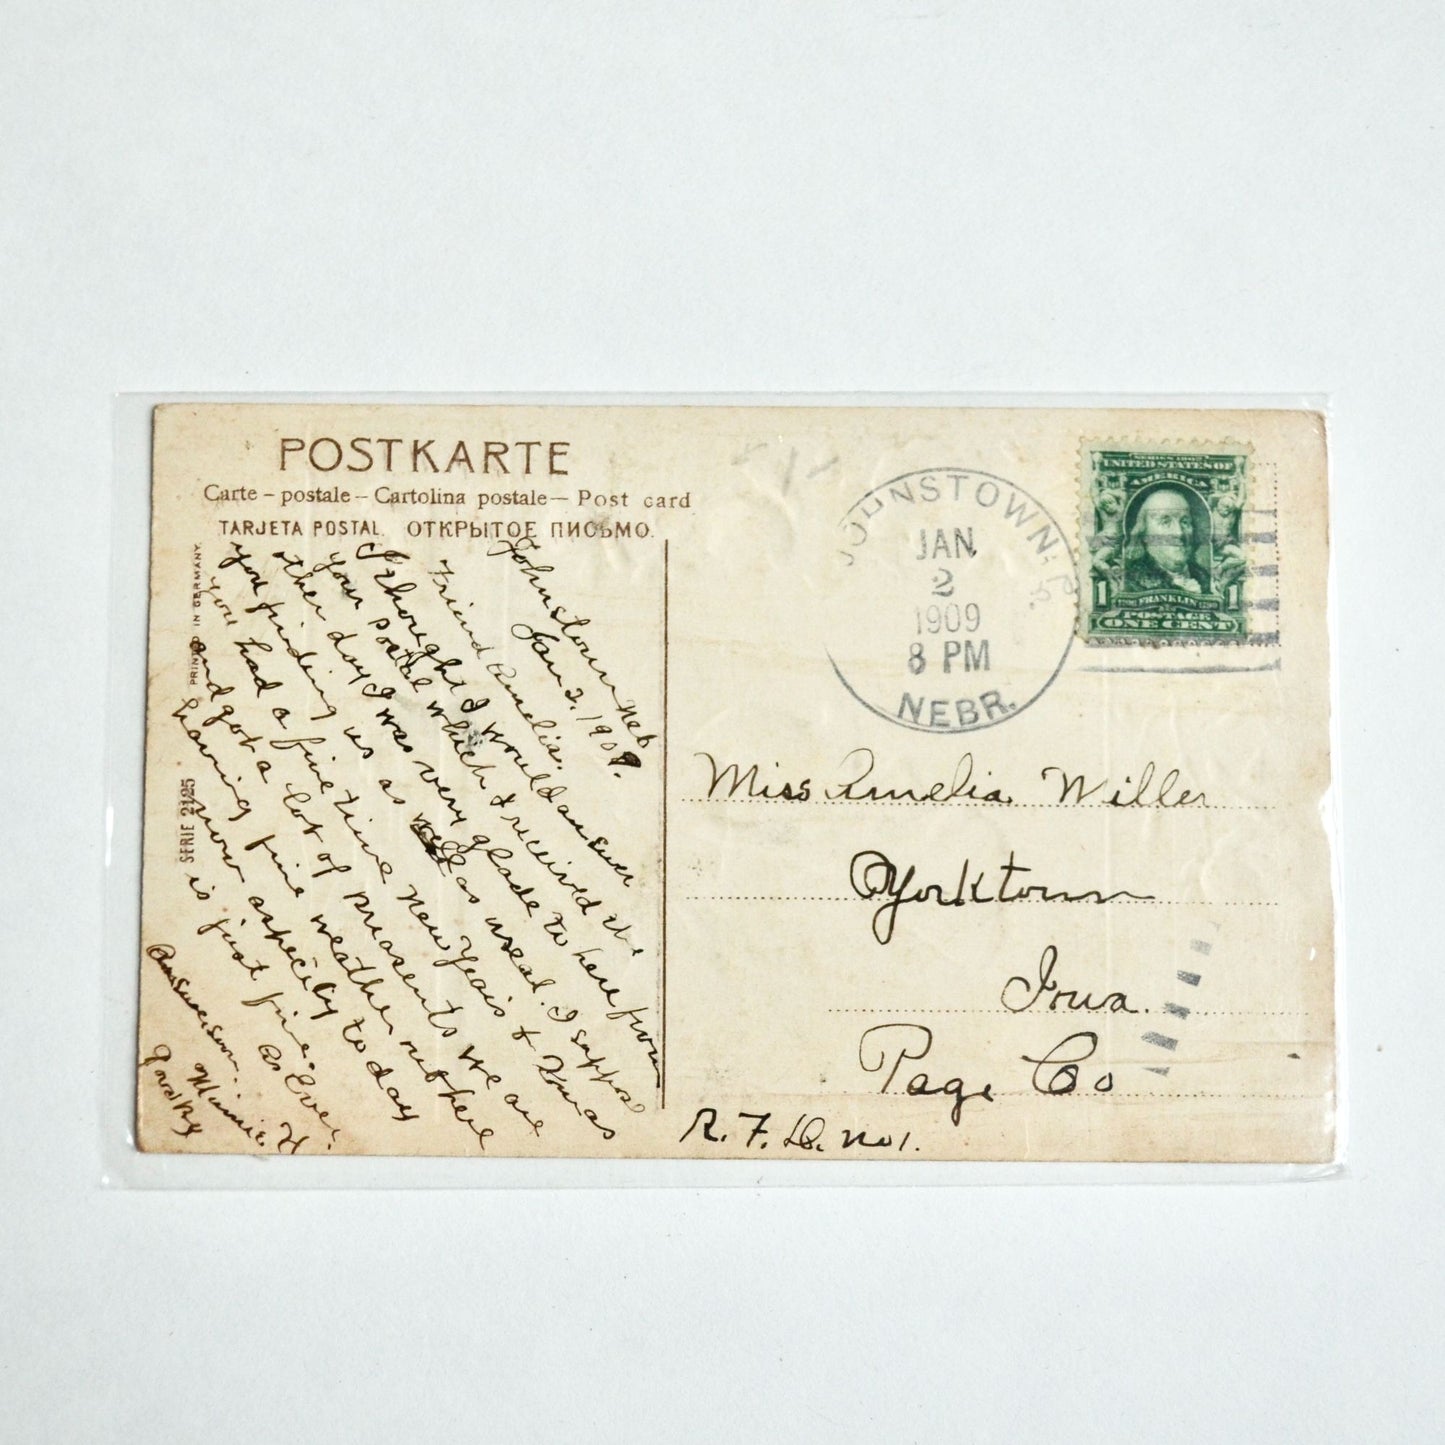 POSTKARTE
Carte – postale – Cartolina postale — Post card
TARJETA POSTAL. ОТКРЫТОЕ ПИСЬМО.
PRINTED IN GERMANY.
SERIE 2125
Johnstown Neb
Jan 2, 1909.
Friend Amelia.
I thought I would answer
your postal which I received the
other day I was very glade to here from
you finding us as well as useal. I suppose
you had a fine time New Years & Xmas
and got a lot of presents we are
having fine weather out here
now aspecily to day
is just fine.
As Ever.
Answer soon.
Minnie. H
JOHNSTOWN,
JAN
2
1909
8 PM
NEBR.
SERIES 1902
UNITED STATES OF
AMERICA
1 FRANKLIN 1
POSTAGE
ONE CENT
Miss Amelia Willer
Yorktown
Iowa.
Page Co
R. F. D. No 1.